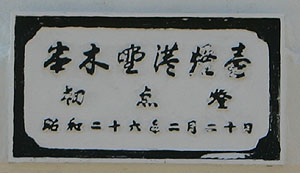 串木野港燈臺
初点燈
昭和二十六年二月二十日